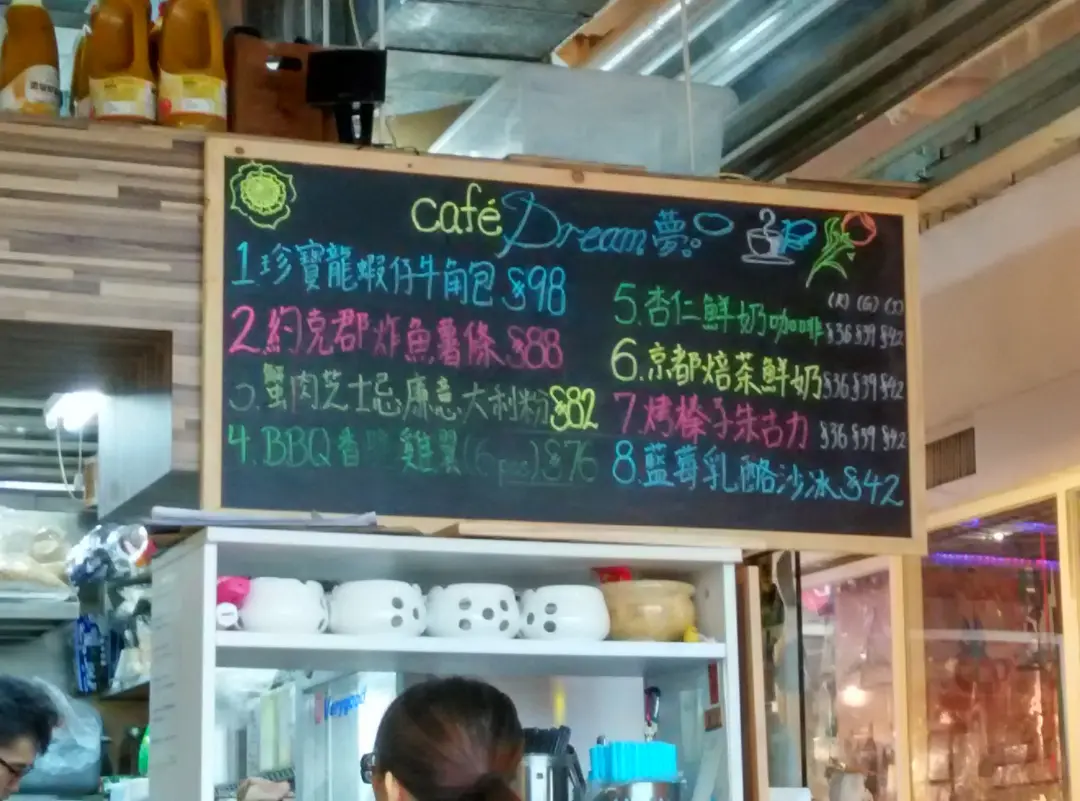 café Dream 夢
1 珍寶龍蝦仔牛角包 $98
2.約克郡炸魚薯條 $88
3.蟹肉芝士忌廉意大利粉 $82
4.BBQ香 雞翼(6pcs) $76
(R) (G) (J)
5.杏仁鮮奶咖啡 $36 $39 $42
6.京都焙茶鮮奶 $36 $39 $42
7.烤榛子朱古力 $36 $39 $42
8.藍莓乳酪沙冰 $42
Verygood